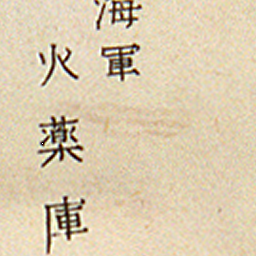 海軍
火薬庫